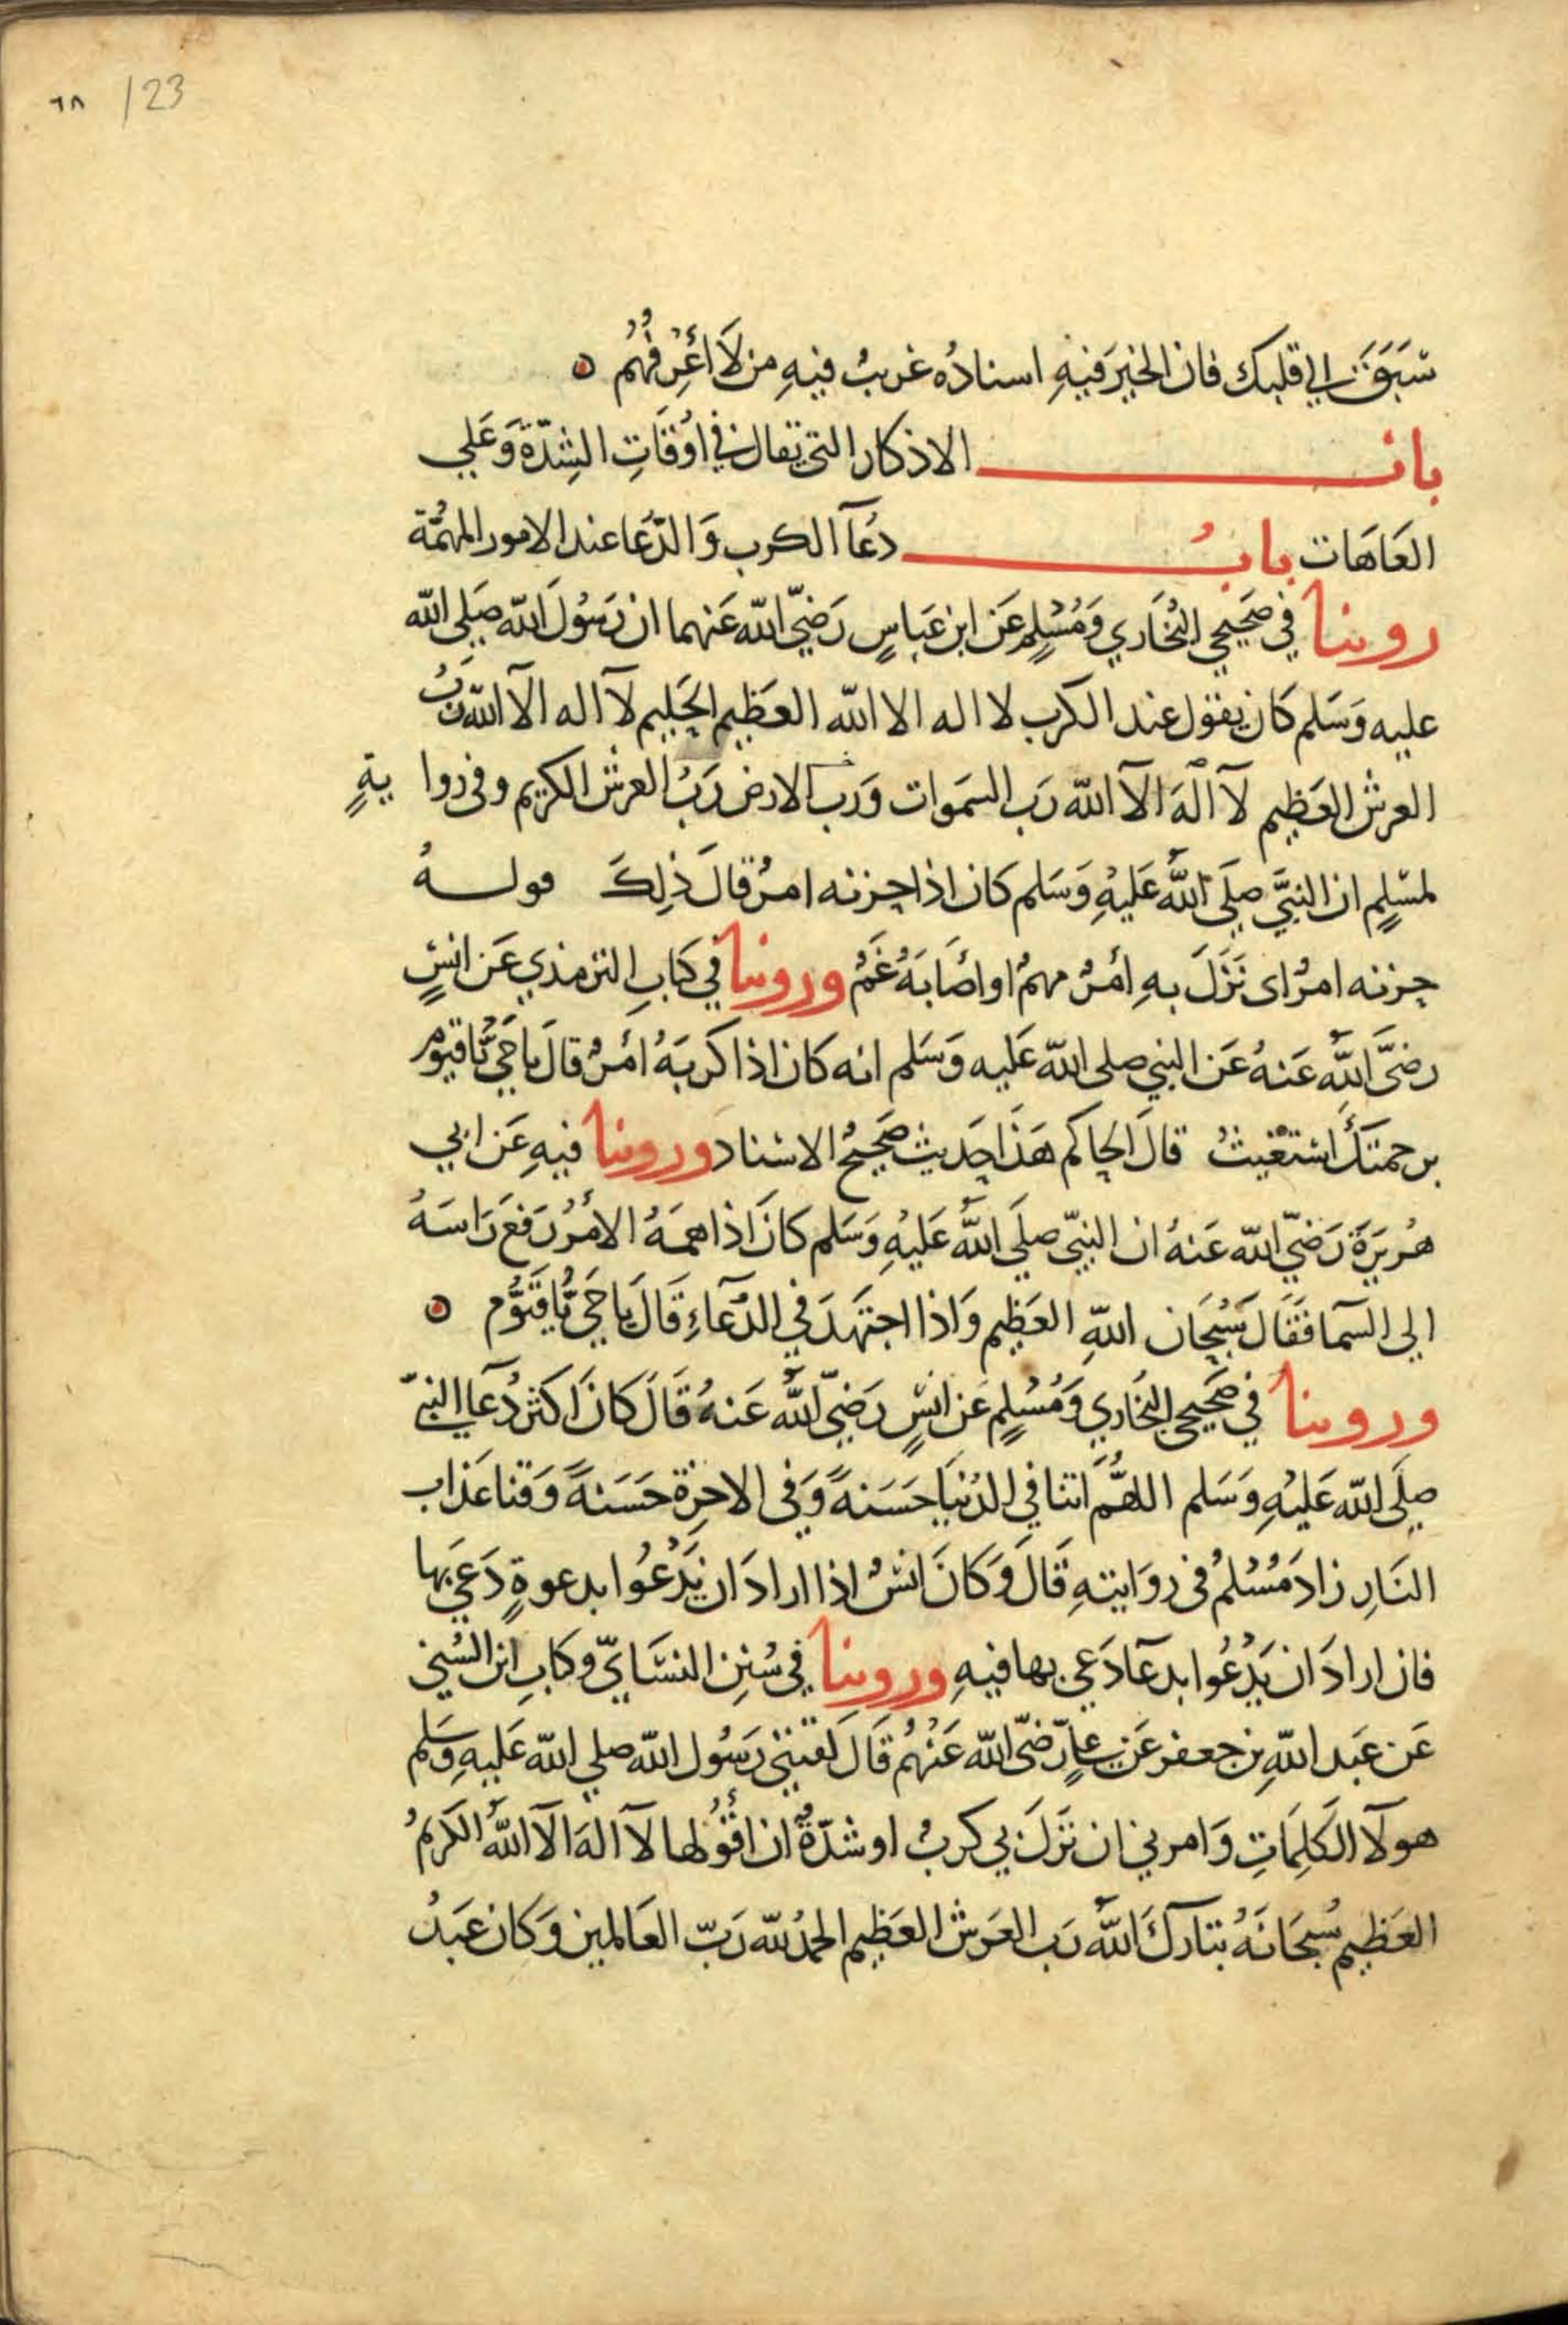 ٦٨ /23
سَبَقَ الي قلبك فان الخيرَ فيهِ اسنادُه غريبٌ فيهِ من لَا اَعْرِفُهُم ه
باب الاذكار التى تقال في اوْقَاتِ الشِدّة وَعَلي
العَاهَات بابُ دُعَآ الكرب وَالدُّعَا عند الامور المهُمَّة
روينا في صَحِيحي البُخَاري وَمُسْلِمٍ عَن ابن عَباسٍ رَضيّ الله عَنهما ان رَسُولَ الله صَلي الله
عليه وَسَلم كَان يقول عند الكرب لا اله الا الله العَظيم الحَليم لآ اله الآ الله رَبُ
العرش العَظِيم لآ الَهَ الآ الله رَب السَمَوات وَرَب الارض رَبُ العرش الكريم وفى روايةٍ
لمسْلِمٍ ان النبيَّ صلَى اللَّهُ عَليهِ وَسَلم كان اذا حزنه امرٌ قالَ ذلِكَ قولهُ
حزنه امرٌ اى نَزَلَ بهِ أمرٌ مهمٌ او اصَابَهُ غَمٌ وروينا في كَابِ الترمذي عَن انسٍ
رضىَّ اللَّهُ عَنهُ عَن النبي صلى الله عَليه وَسَلم انه كان اذا كَربَهُ امرٌ قالَ يا حَيُّ يا قيومُ
برحمتكَ استغيثُ قالَ الحاكم هَذَا حَديث صَحيحُ الاسْناد وروينا فيهِ عَن ابي
هُريرَة رَضيّ الله عَنهُ ان النبيّ صلَي اللَّهُ عَليْهِ وَسَلم كانَ اذا همهُ الامْرُ رَفعَ رَاسَهُ
الي السمَا فَقَالَ سُبحَان اللهِ العَظِيم وَاذا اجتَهَدَ في الدُّعَآءِ قَالَ يَا حَيُّ يَا قَيُّوم ه
وروينا في صَحيحي البُخَاري وَمُسْلِمٍ عَن انسٍ رَضيّ اللَّهُ عَنهُ قَالَ كانَ اكثر دُعَآء النبيّ
صلَي الله عَليْهِ وَسَلم اللهُمَّ اتنا في الدُنيَا حَسَنةً وَفى الاخِرَة حَسَنةً وَقنا عَذاب
النَارِ زادَ مُسْلمٌ فى روَايتهِ قَالَ وَكانَ انسٌ اذا ارادَ ان يَدْعُوا بدعوةٍ دَعَي بها
فان ارادَ ان يَدْعُوا بدعَآ دَعي بها فيهِ وروينا في سُنن النسَايّ وكابِ ابن السُني
عَن عَبد اللهِ بن جعفر عَن عليٍ رَضىّ الله عَنْهُم قَالَ لقنني رَسُول الله صلي الله عَليهِ وَسَلم
هولآ الكَلِمَاتِ وَامرني ان نزَلَ بي كربٌ او شدّةٌ ان اقُولها لآ الهَ الآ اللَّهُ الكَريمُ
العَظِيم سُبحَانَهُ تبَارَكَ اللَّهُ رَب العَرش العَظِيم الحمدُ لله رَبّ العَالمين وَكان عَبدُ